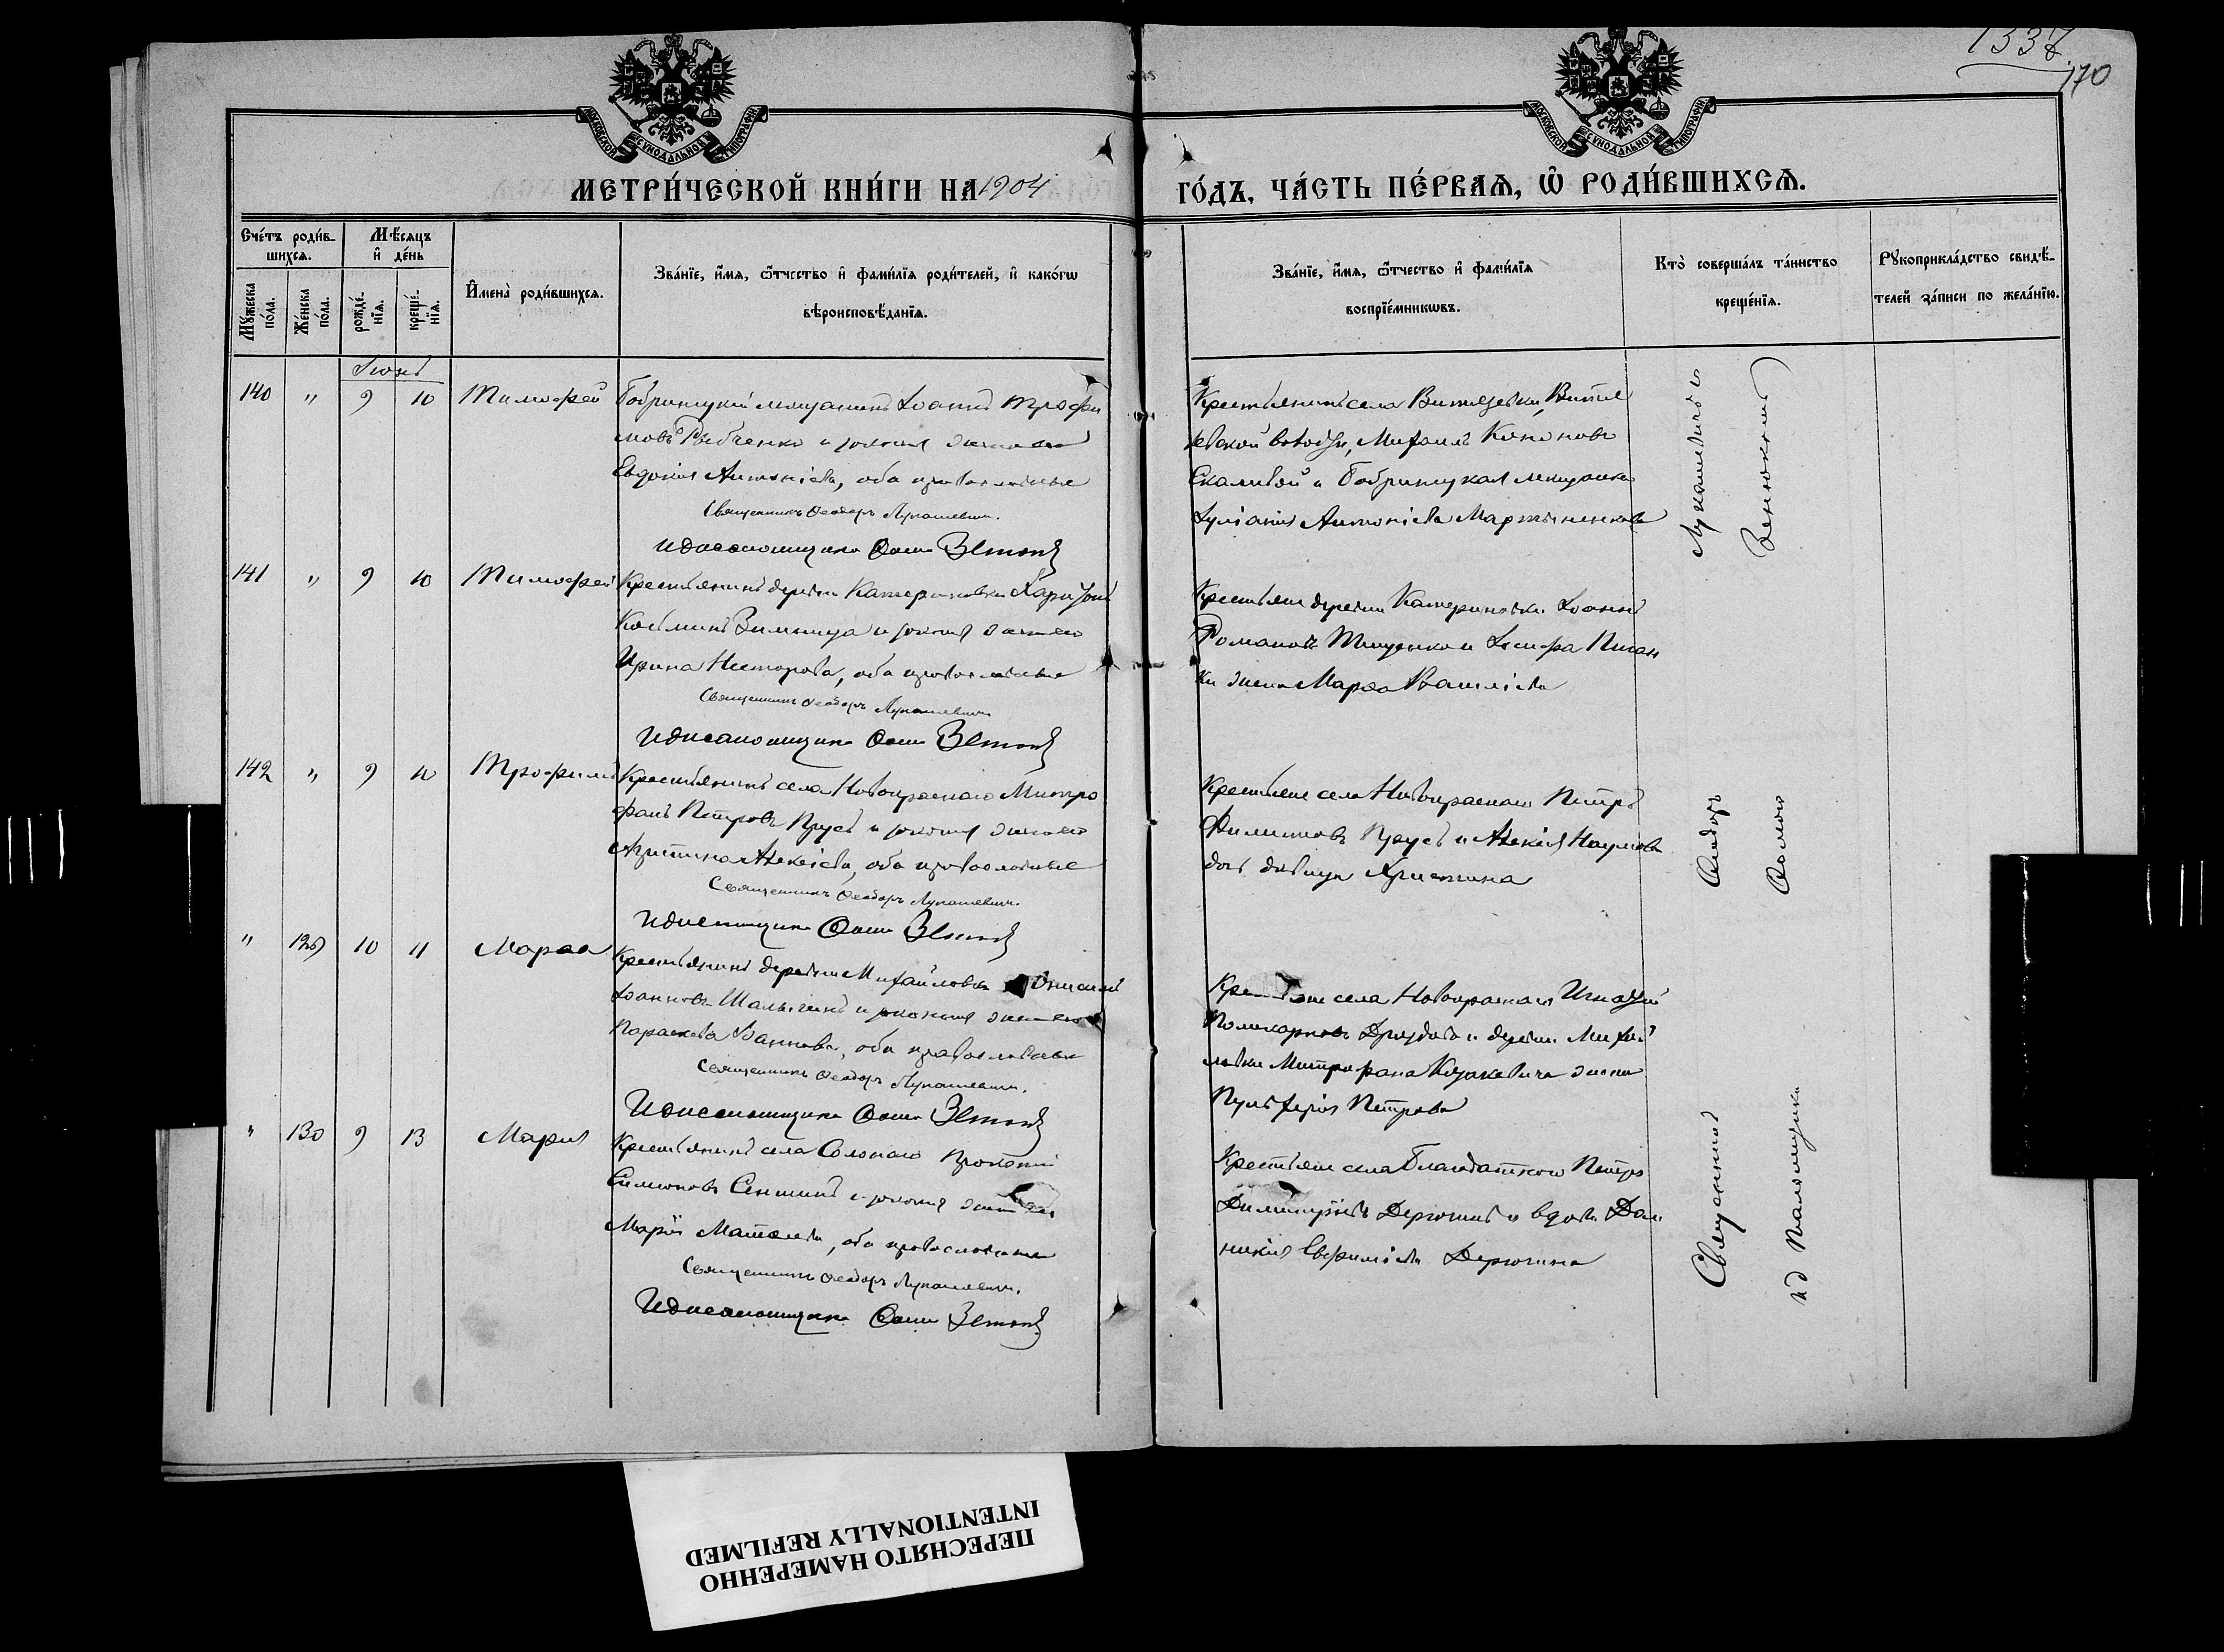 1337
170
МОСКОВСКОЙ СѴНОДАЛЬНОЙ ТИПОГРАФІИ
МОСКОВСКОЙ СѴНОДАЛЬНОЙ ТИПОГРАФІИ
МЕТРИ́ЧЕСКОЙ КНИ́ГИ НА 1904 ГО́ДЪ, ЧА́СТЬ ПЕ́РВАѦ, Ѽ РОДИ́ВШИХСѦ.
Сче́тъ роди́в-
шихсѧ.
Мꙋ́жеска по́ла.
Же́нска по́ла.
Мѣ́сѧцъ и҆ де́нь
рожде́-нїѧ.
креще́-нїѧ.
И҆мена̀ роди́вшихсѧ.
Зва́нїе, и҆́мѧ, ѻ҆́тчество и҆ фами́лїѧ роди́телей, и҆ како́гѡ
вѣроисповѣ́данїѧ.
Зва́нїе, и҆́мѧ, ѻ҆́тчество и҆ фами́лїѧ
воспрїе́мникѡвъ.
Кто̀ соверша́лъ та́инство
креще́нїѧ.
Рꙋкоприкла́дство свидѣ́-
телей за́писи по жела́нїю.
Іюнь
140 " 9 10 Тимофей
Бобринецкій мещанинъ Іоаннъ Трофи
мовъ Рябченко и законная жена его
Евдокія Антоніева, оба православные
Священникъ Ѳеодоръ Лукашевичъ.
И д псаломщика
Крестьянинъ села Витязевки, Витязевской волости, Михаилъ Кононовъ
Скаливой и Бобринецкая мещанка
Іуліанія Антоніева Мартыненкова
141 " 9 10 Тимофей
Крестьянинъ деревни Катериновки Харитонъ
Козминъ Зимница и законная жена его
Ирина Несторова, оба православные
Священникъ Ѳеодоръ Лукашевичъ
И д псаломщика
Крестьяне деревни Катериновки Іоаннъ
Романовъ Тищенко и
жена Марѳа Василіева
142 " 9 10 Трофимъ
Крестьянинъ села Новокраснаго Митро
фанъ Петровъ Прусъ и законная жена его
Христина Алексіева, оба православные
Священникъ Ѳеодоръ Лукашевичъ.
И д псаломщика
Крестьяне села Новокраснаго Петръ
Филиповъ Прусъ и Алексія Наумова
дочь девица Христина
" 129 10 11 Марѳа
Крестьянинъ деревни Михайловки Онисимъ
Іоанновъ и законная жена его
Параскева Іоаннова, оба православные
Священникъ Ѳеодоръ Лукашевичъ.
И д псаломщика
Крестьяне села Новокраснаго Игнатій
Поликарповъ Дроздовъ и деревни Михай
ловки Митрофана Козакевича жена
Пульхерія Петрова
" 130 9 13 Марія
Крестьянинъ села Солонаго Прокопій
Симеоновъ и законная жена его
Марія Матѳеева, оба православные
Священникъ Ѳеодоръ Лукашевичъ.
И д псаломщика
Крестьяне села Благодатнаго Петръ
Димитріевъ Дерюгинъ и вдова Дом
никія Евфиміева Дерюгина
Священникъ Ѳеодоръ Лукашевичъ и
И д псаломщика
ПЕРЕСНЯТО НАМЕРЕННО
INTENTIONALLY REFILMED